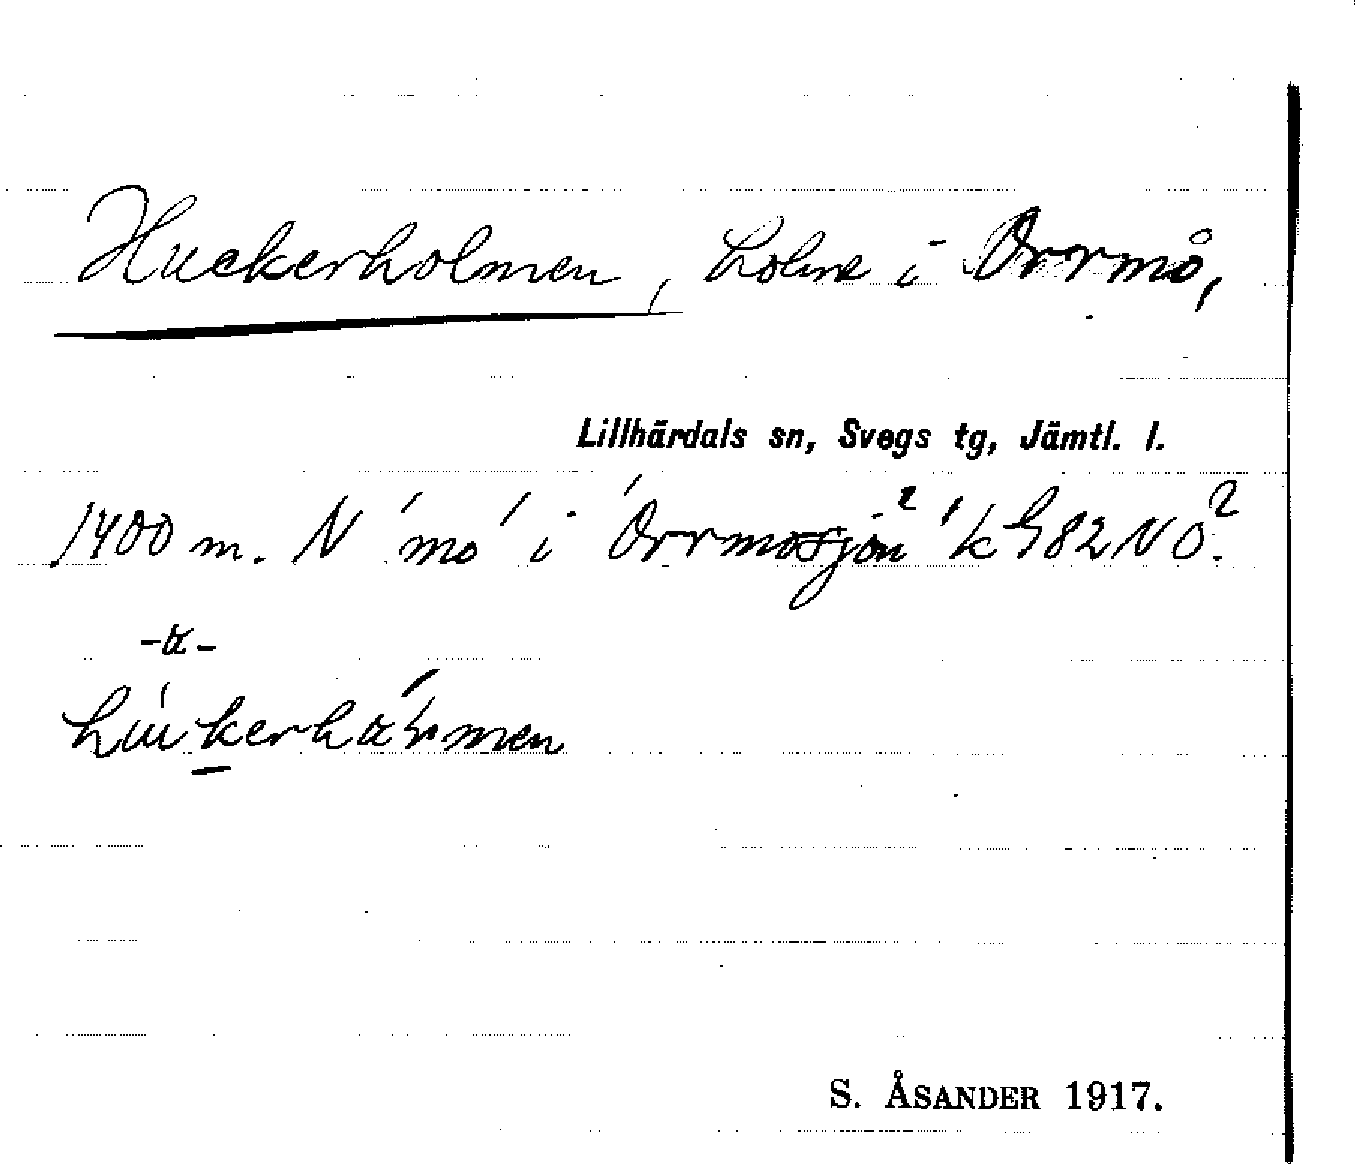 Huckerholmen, holme i Orrmo,
Lillhärdals sn, Svegs tg, Jämtl. l.
1400 m. N 'mo' i 'Orrmosjön' k G82NO?
-α-
húkerhα'rmen
S. ÅSANDER 1917.